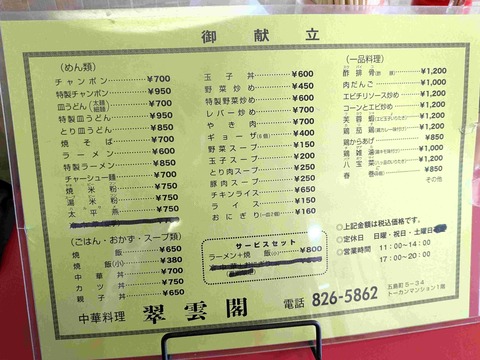 御献立
(めん類)
チャンポン ¥700
特製チャンポン ¥950
皿うどん(太麺 細麺) ¥700
特製皿うどん ¥950
とり皿うどん ¥850
焼そば ¥700
ラーメン ¥600
特製ラーメン ¥850
チャーシュー麺 ¥700
焼米粉 ¥750
湯米粉 ¥750
太平燕 ¥750
(ごはん・おかず・スープ類)
焼飯 ¥650
焼飯(小) ¥380
中華丼 ¥700
カツ丼 ¥750
親子丼 ¥650
玉子丼 ¥600
野菜炒め ¥450
特製野菜炒め ¥600
レバー炒め ¥700
やき肉 ¥700
ギョーザ(8個) ¥400
野菜スープ ¥150
玉子スープ ¥200
とり肉スープ ¥250
豚肉スープ ¥250
チキンライス ¥650
ライス ¥150
おにぎり(一皿2個) ¥160
サービスセット
ラーメン+焼飯(小) ¥800
(一品料理)
酢排骨(酢豚) ¥1,200
肉だんご ¥1,000
エビチリソース炒め ¥1,200
コーンとエビ炒め ¥1,200
芙蓉蝦(エビ玉子いため) ¥1,200
鶏茄鶏(鶏カレー味付) ¥1,200
鶏からあげ ¥850
鶏雑湯 ¥1,000
八宝菜(八品のいため) ¥1,200
春巻 ¥850
その他
○上記金額は税込価格です。
○定休日 日曜・祝日・土曜日
○営業時間 11:00~14:00
17:00~20:00
中華料理 翠雲閣 電話 826-5862
五島町5-34
トーカンマンション1階